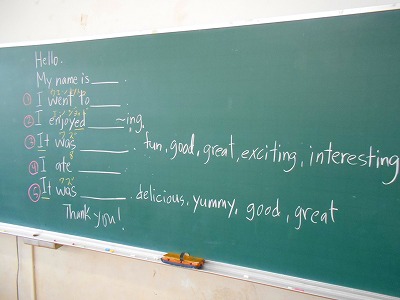 Hello.
My name is ____ .
① I went to ____ .
② I enjoyed ____ ~ing.
③ It was ____ . fun, good, great, exciting, interesting
④ I ate ____ .
⑤ It was ____ . delicious, yummy, good, great
Thank you!